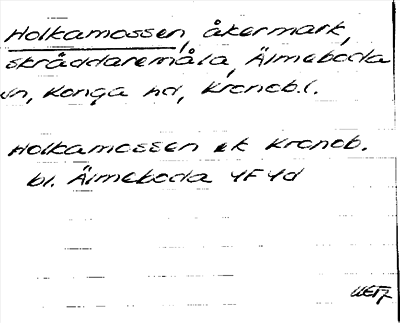 Holkamossen, åkermark,
skräddaremåla, Älmeboda
sn, Konga hd, Kronob.l.
Holkamossen ek Kronob.
bl. Älmeboda 4F4d